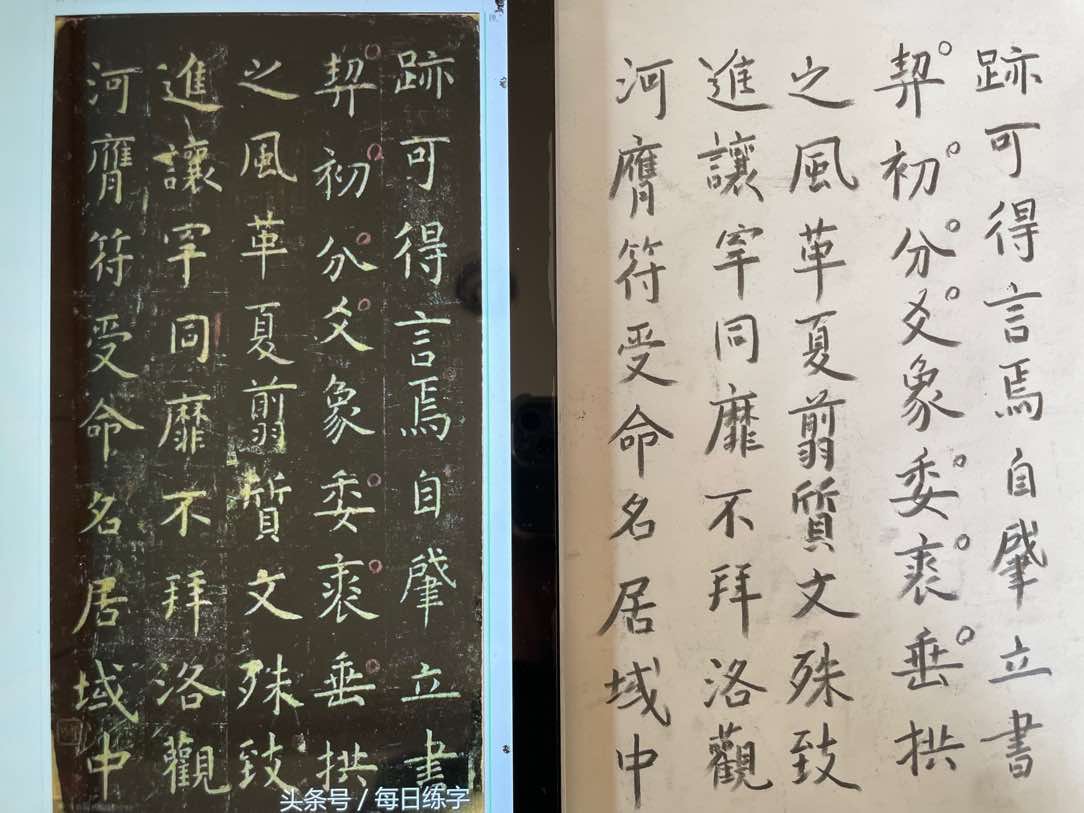 跡可得言焉自肇立書
契初分爻象委裘垂拱
之風革夏翦質文殊致
進讓罕同靡不拜洛觀
河膺符受命名居域中
头条号 / 每日练字
跡可得言焉自肇立書
契初分爻象委裘垂拱
之風革夏翦質文殊致
進讓罕同靡不拜洛觀
河膺符受命名居域中